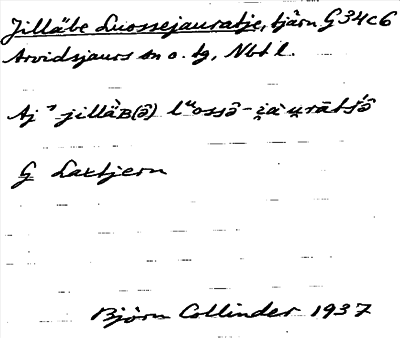 Jilläbe Luossejauratje, tjärn G34c6
Arvidsjaurs sn o. tg, Nbt l.
Aj ⁻jillὰ̈ʙ(ə̑)
G Laxtjern
Björn Collinder 1937